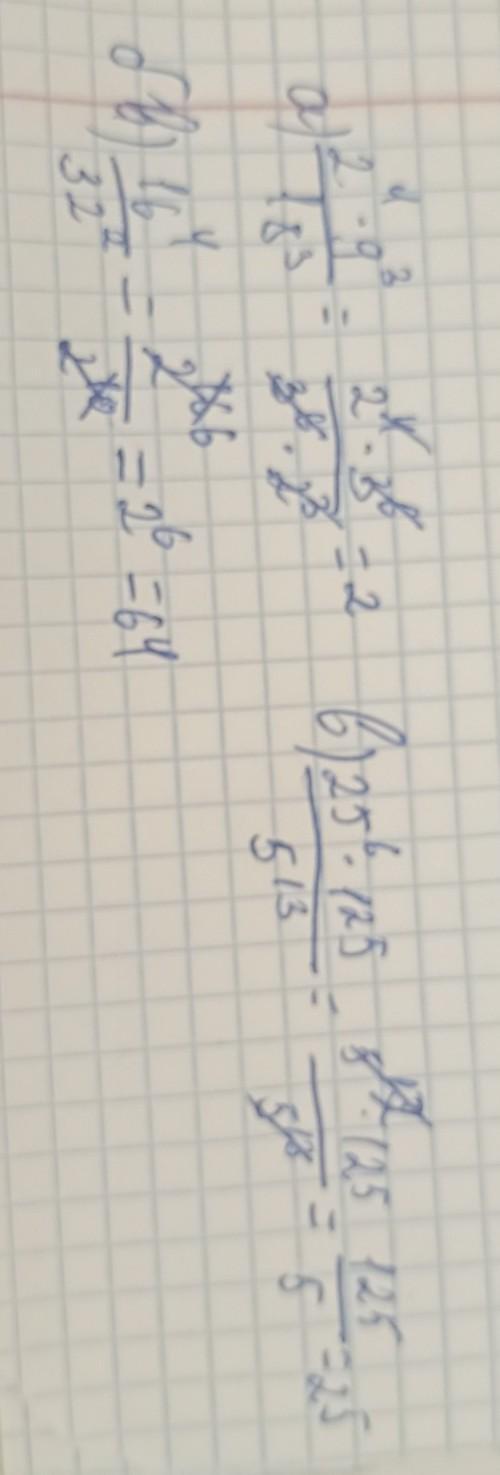 а) 2⁴ · 9³ / 18³ = 2⁴ · 3⁶ / 3⁶ · 2³ = 2
в) 25⁶ · 125 / 5¹³ = 5¹² · 125 / 5¹³ = 125 / 5 = 25
б) 16⁴ / 32² = 2¹⁶ ⁶ / 2¹⁰ = 2⁶ = 64